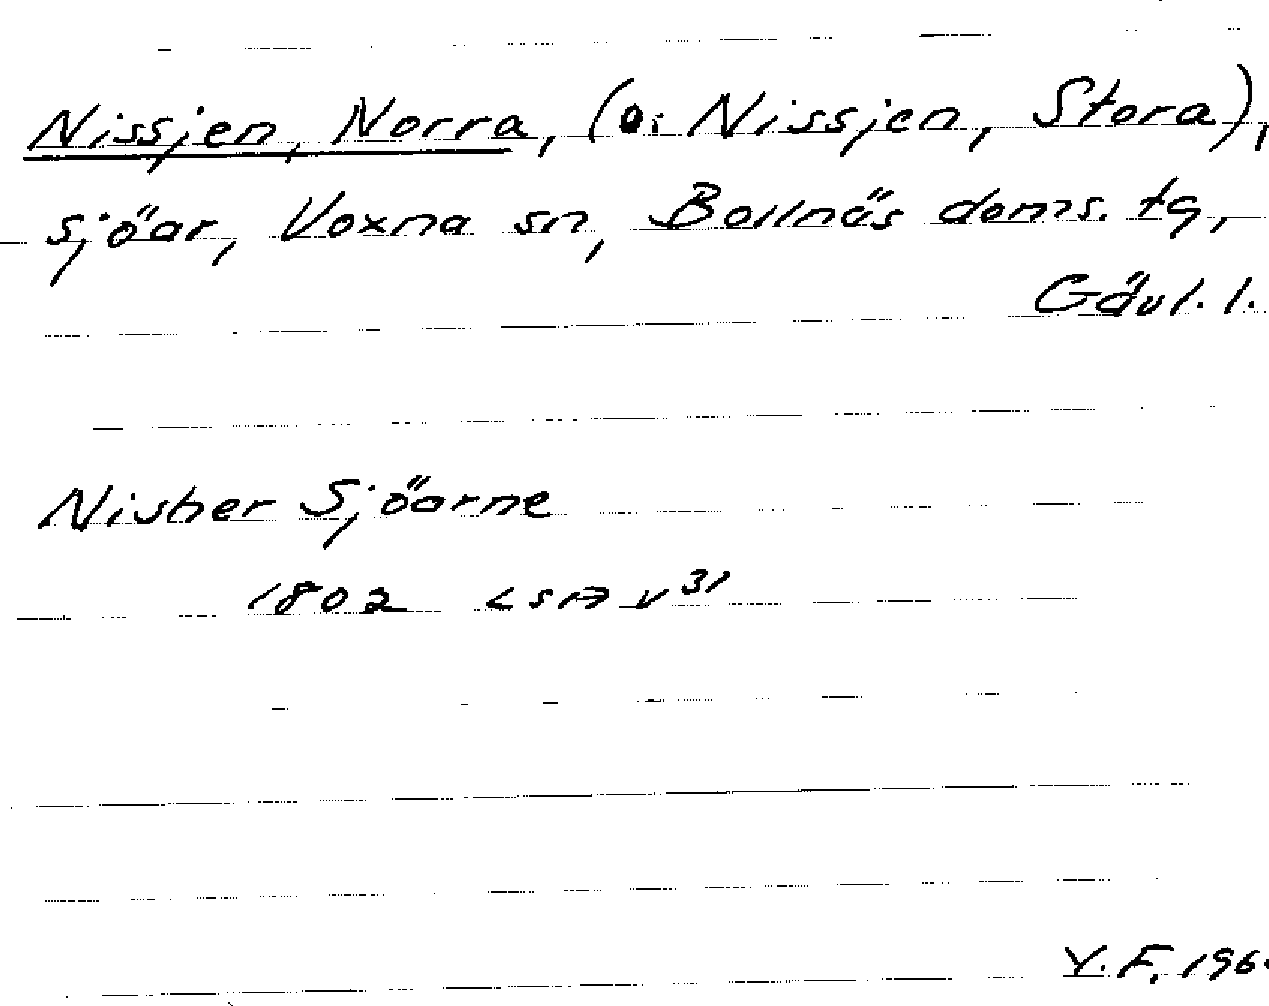 Nissjen, Norra, (o. Nissjen, Stora),
sjöar, Voxna sn, Bollnäs doms. tg,
Gävl. l.
Nisher Sjöarne
1802 LSA V 31
Y. F. 196